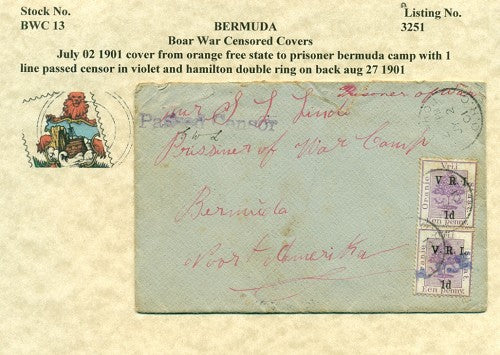 Stock No.
BWC 13
BERMUDA
Listing No.
3251
Boar War Censored Covers
July 02 1901 cover from orange free state to prisoner bermuda camp with 1
line passed censor in violet and hamilton double ring on back aug 27 1901
Prisoner of War
Passed Censor
Prissiner of War Camp
Bermuda
Noort Amerika
Oranje Vrij
V. R. I.
1d
Een penny.
V. R. I.
1d
Een penny.